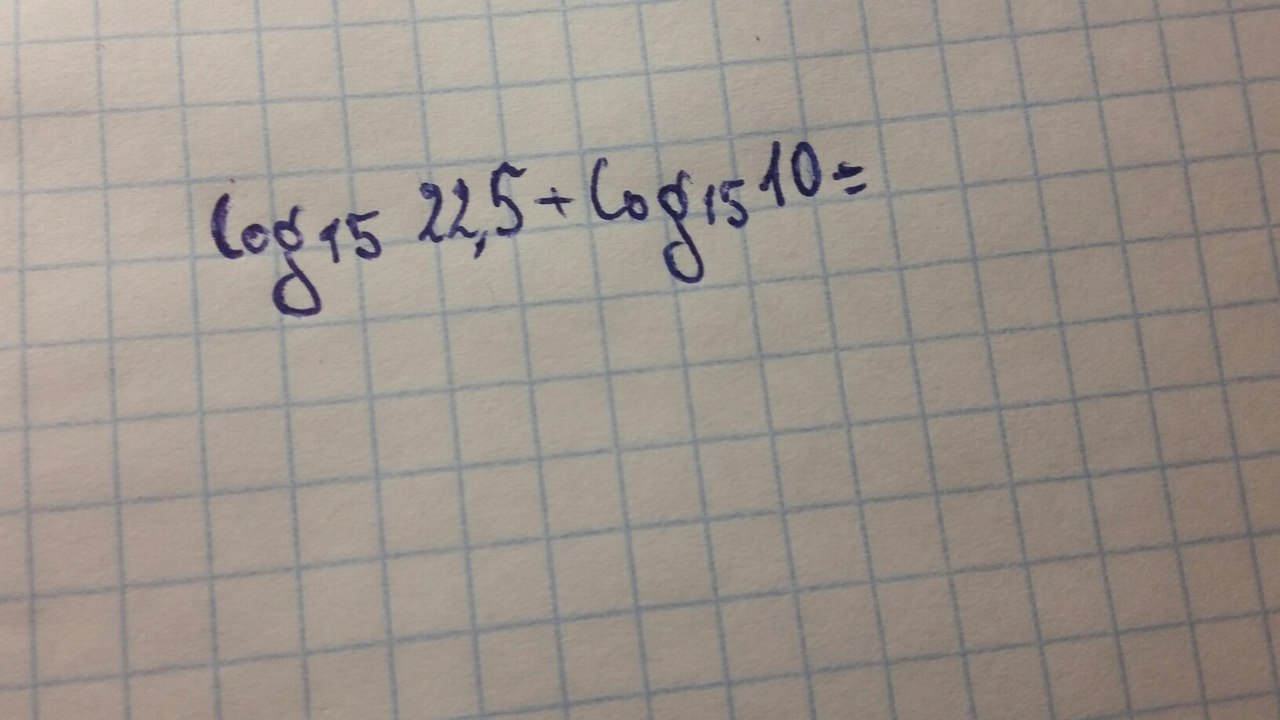 log₁₅ 22,5 + log₁₅ 10 =